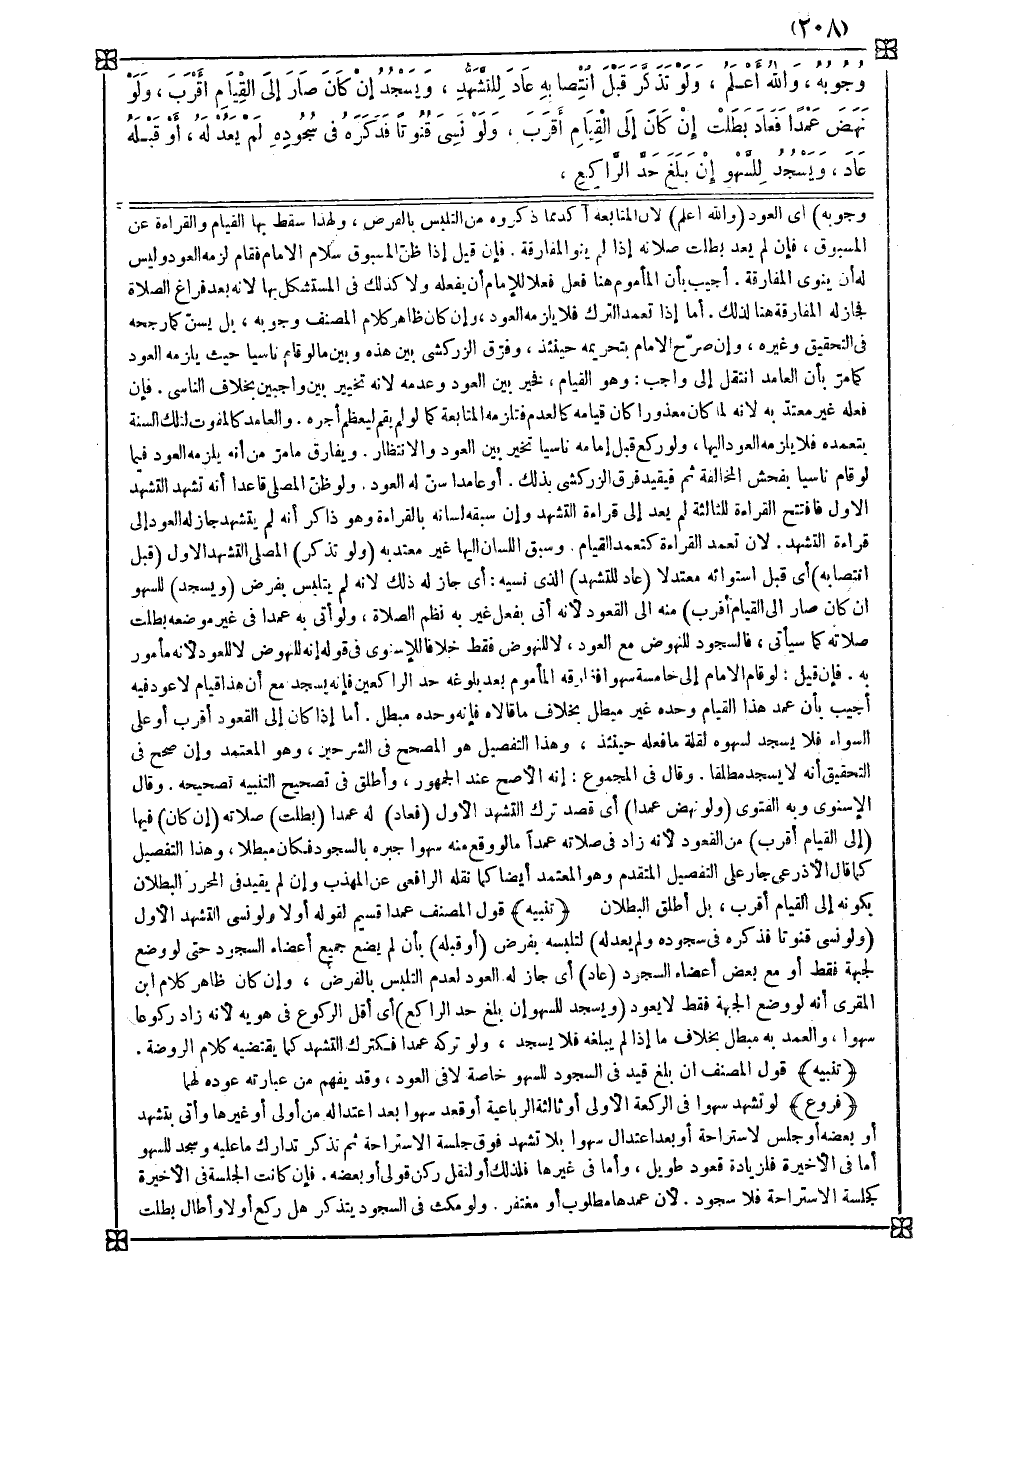 (٢٠٨)
وُجُوبُهُ ، وَاللهُ أَعْلَمُ ، وَلَوْ تَذَكَّرَ قَبْلَ انْتِصَابِهِ عَادَ لِلتَّشَهُّدِ ، وَيَسْجُدُ إِنْ كَانَ صَارَ إِلَى الْقِيَامِ أَقْرَبَ ، وَلَوْ
نَهَضَ عَمْدًا فَعَادَ بَطَلَتْ إِنْ كَانَ إِلَى الْقِيَامِ أَقْرَبَ ، وَلَوْ نَسِيَ قُنُوتًا فَذَكَرَهُ فِى سُجُودِهِ لَمْ يَعُدْ لَهُ ، أَوْ قَبْلَهُ
عَادَ ، وَيَسْجُدُ لِلسَّهْوِ إِنْ بَلَغَ حَدَّ الرَّاكِعِ ،
وجوبه) أى العود (والله أعلم) لأن المتابعة آكد مما ذكروه من التلبس بالفرض ، ولهذا سقط بها القيام والقراءة عن
المسبوق ، فإن لم يعد بطلت صلاته إذا لم ينو المفارقة . فإن قيل إذا ظنّ المسبوق سلام الامام فقام لزمه العود وليس
له أن ينوى المفارقة . أجيب بأن المأموم هنا فعل فعلا للإمام أن يفعله ولا كذلك فى المستشكل بها لانه بعد فراغ الصلاة
فجاز له المفارقة هنا لذلك . أما إذا تعمد الترك فلا يلزمه العود ، وإن كان ظاهر كلام المصنف وجوبه ، بل يسنّ كما رجحه
فى التحقيق وغيره ، وإن صرّح الامام بتحريمه حينئذ ، وفرّق الزركشى بين هذه وبين ما لو قام ناسيا حيث يلزمه العود
كما مرّ بأن العامد انتقل إلى واجب : وهو القيام ، فخير بين العود وعدمه لانه تخيير بين واجبين بخلاف الناسى . فإن
فعله غير معتدّ به لانه لما كان معذورا كان قيامه كالعدم فتلزمه المتابعة كما لو لم يقم ليعظم أجره . والعامد كالمفوت لتلك السنة
بتعمده فلا يلزمه العود اليها ، ولو ركع قبل إمامه ناسيا تخير بين العود والانتظار . ويفارق ما مرّ من أنه يلزمه العود فيما
لو قام ناسيا بفحش المخالفة ثم فيقيد فرق الزركشى بذلك . أو عامدا سنّ له العود . ولو ظنّ المصلى قاعدا أنه تشهد التشهد
الاول فافتتح القراءة للثالثة لم يعد إلى قراءة التشهد وإن سبقه لسانه بالقراءة وهو ذاكر أنه لم يتشهد جاز له العود إلى
قراءة التشهد . لان تعمد القراءة كتعمد القيام . وسبق اللسان اليها غير معتد به (ولو تذكر) المصلى التشهد الاول (قبل
انتصابه) أى قبل استوائه معتدلا (عاد للتشهد) الذى نسيه : أى جاز له ذلك لانه لم يتلبس بفرض (ويسجد) للسهو
ان كان صار الى القيام أقرب) منه الى القعود لأنه أتى بفعل غير به نظم الصلاة ، ولو أتى به عمدا فى غير موضعه بطلت
صلاته كما سيأتى ، فالسجود للنهوض مع العود ، لا للنهوض فقط خلافا للإسنوى فى قوله إنه للنهوض لا للعود لأنه مأمور
به . فإن قيل : لو قام الامام إلى خامسة سهوا ففارقه المأموم بعد بلوغه حد الراكعين فإنه يسجد مع أن هذا قيام لا عود فيه
أجيب بأن عمد هذا القيام وحده غير مبطل بخلاف ما قالاه فإنه وحده مبطل . أما إذا كان إلى القعود أقرب أو على
السواء فلا يسجد لسهوه لقلة ما فعله حينئذ ، وهذا التفصيل هو المصحح فى الشرحين ، وهو المعتمد وإن صحح فى
التحقيق أنه لا يسجد مطلقا . وقال فى المجموع : إنه الأصح عند الجمهور ، وأطلق فى تصحيح التنبيه تصحيحه . وقال
الإسنوى وبه الفتوى (ولو نهض عمدا) أى قصد ترك التشهد الأول (فعاد) له عمدا (بطلت) صلاته (إن كان) فيها
(إلى القيام أقرب) من القعود لأنه زاد فى صلاته عمدا ما لو وقع منه سهوا جبره بالسجود فكان مبطلا ، وهذا التفصيل
كما قال الأذرعى جار على التفصيل المتقدم وهو المعتمد أيضا كما نقله الرافعى عن المهذب وإن لم يقيد فى المحرر البطلان
بكونه إلى القيام أقرب ، بل أطلق البطلان ﴿تنبيه﴾ قول المصنف عمدا قسيم لقوله أولا ولو نسى التشهد الأول
(ولو نسى قنوتا فذكره فى سجوده ولم يعد له) لتلبسه بفرض (أو قبله) بأن لم يضع جميع أعضاء السجود حتى لو وضع
لجبهة فقط أو مع بعض أعضاء السجود (عاد) أى جاز له العود لعدم التلبس بالفرض ، وإن كان ظاهر كلام ابن
المقرى أنه لو وضع الجبهة فقط لا يعود (ويسجد للسهو إن بلغ حد الراكع) أى أقل الركوع فى هويه لأنه زاد ركوعا
سهوا ، والعمد به مبطل بخلاف ما إذا لم يبلغه فلا يسجد ، ولو تركه عمدا فكترك التشهد كما يقتضيه كلام الروضة .
﴿تنبيه﴾ قول المصنف ان بلغ قيد فى السجود للسهو خاصة لا فى العود ، وقد يفهم من عبارته عوده لهما
﴿فروع﴾ لو تشهد سهوا فى الركعة الأولى أو ثالثة الرباعية أو قعد سهوا بعد اعتداله من أولى أو غيرها وأتى بتشهد
أو بعضه أو جلس لاستراحة أو بعد اعتدال سهوا بلا تشهد فوق جلسة الاستراحة ثم تذكر تدارك ما عليه وسجد للسهو
أما فى الأخيرة فلزيادة قعود طويل ، وأما فى غيرها فلذلك أو لنقل ركن قولى أو بعضه . فإن كانت الجلسة فى الأخيرة
كجلسة الاستراحة فلا سجود . لأن عمدها مطلوب أو مغتفر . ولو مكث فى السجود يتذكر هل ركع أو لا وأطال بطلت